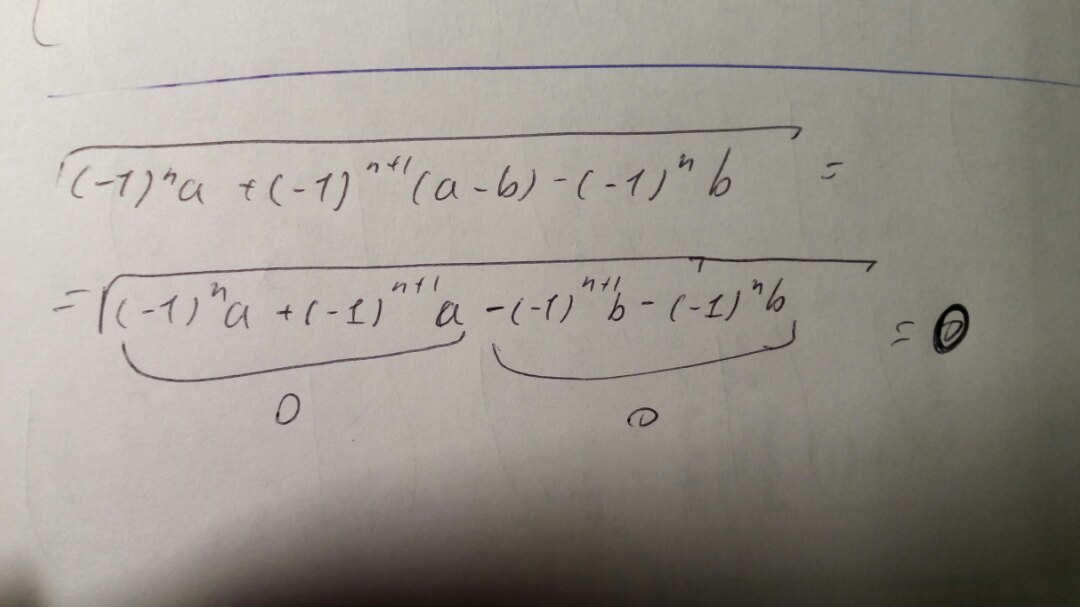 √((-1)ⁿa + (-1)ⁿ⁺¹(a - b) - (-1)ⁿ b) =
= √((-1)ⁿa + (-1)ⁿ⁺¹a - (-1)ⁿ⁺¹b - (-1)ⁿb) = 0
0 0